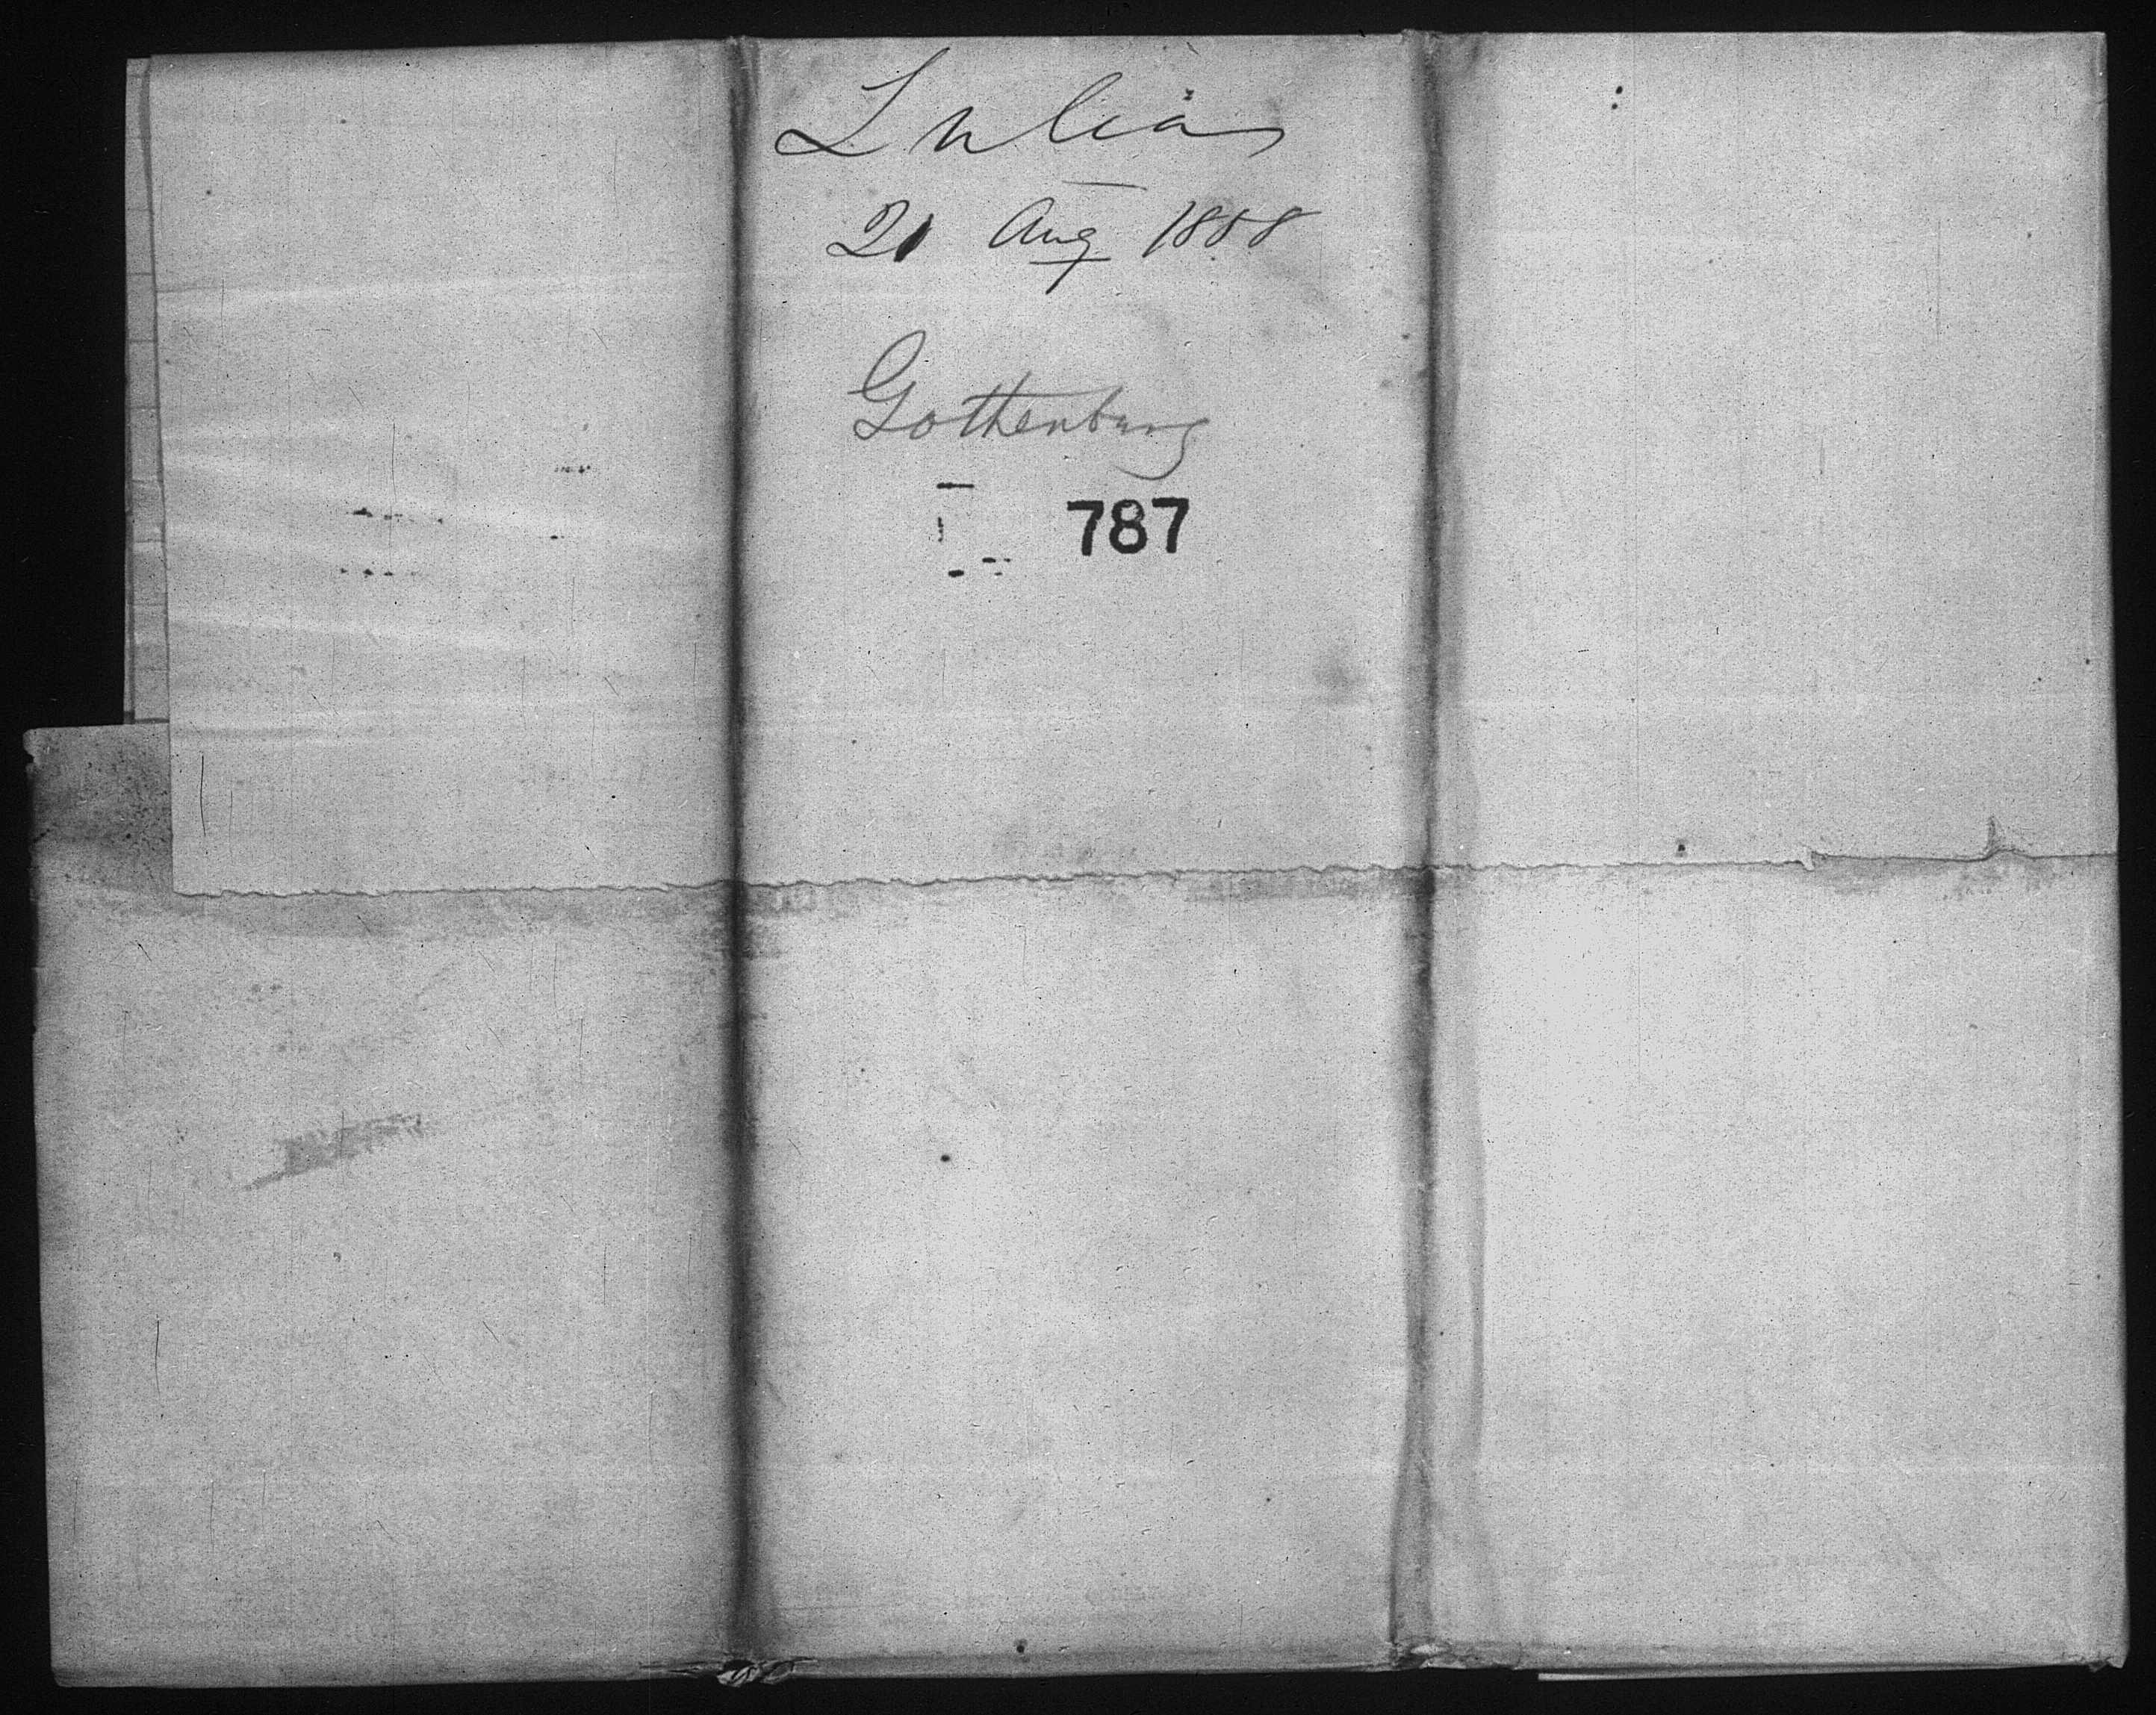 Julia
21 Aug 1888
Gothenburg
787